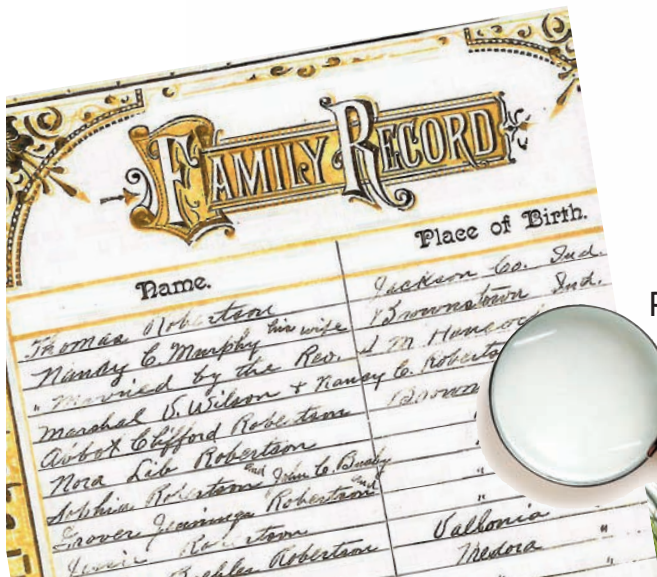 FAMILY RECORD
Name. Place of Birth.
Thomas Robertson Jackson Co. Ind.
Nancy C. Murphy his wife Brownstown Ind.
" Married by the Rev. J M Hancock
Marshal V. Wilson + Nancy C. Roberts
Abbot Clifford Robertson Brown
Nora Lib Robertson "
Sophia Robertson and John C. "
Grover Jennings Robertson "
Robertson Vallonia "
Robertson Medora "
P